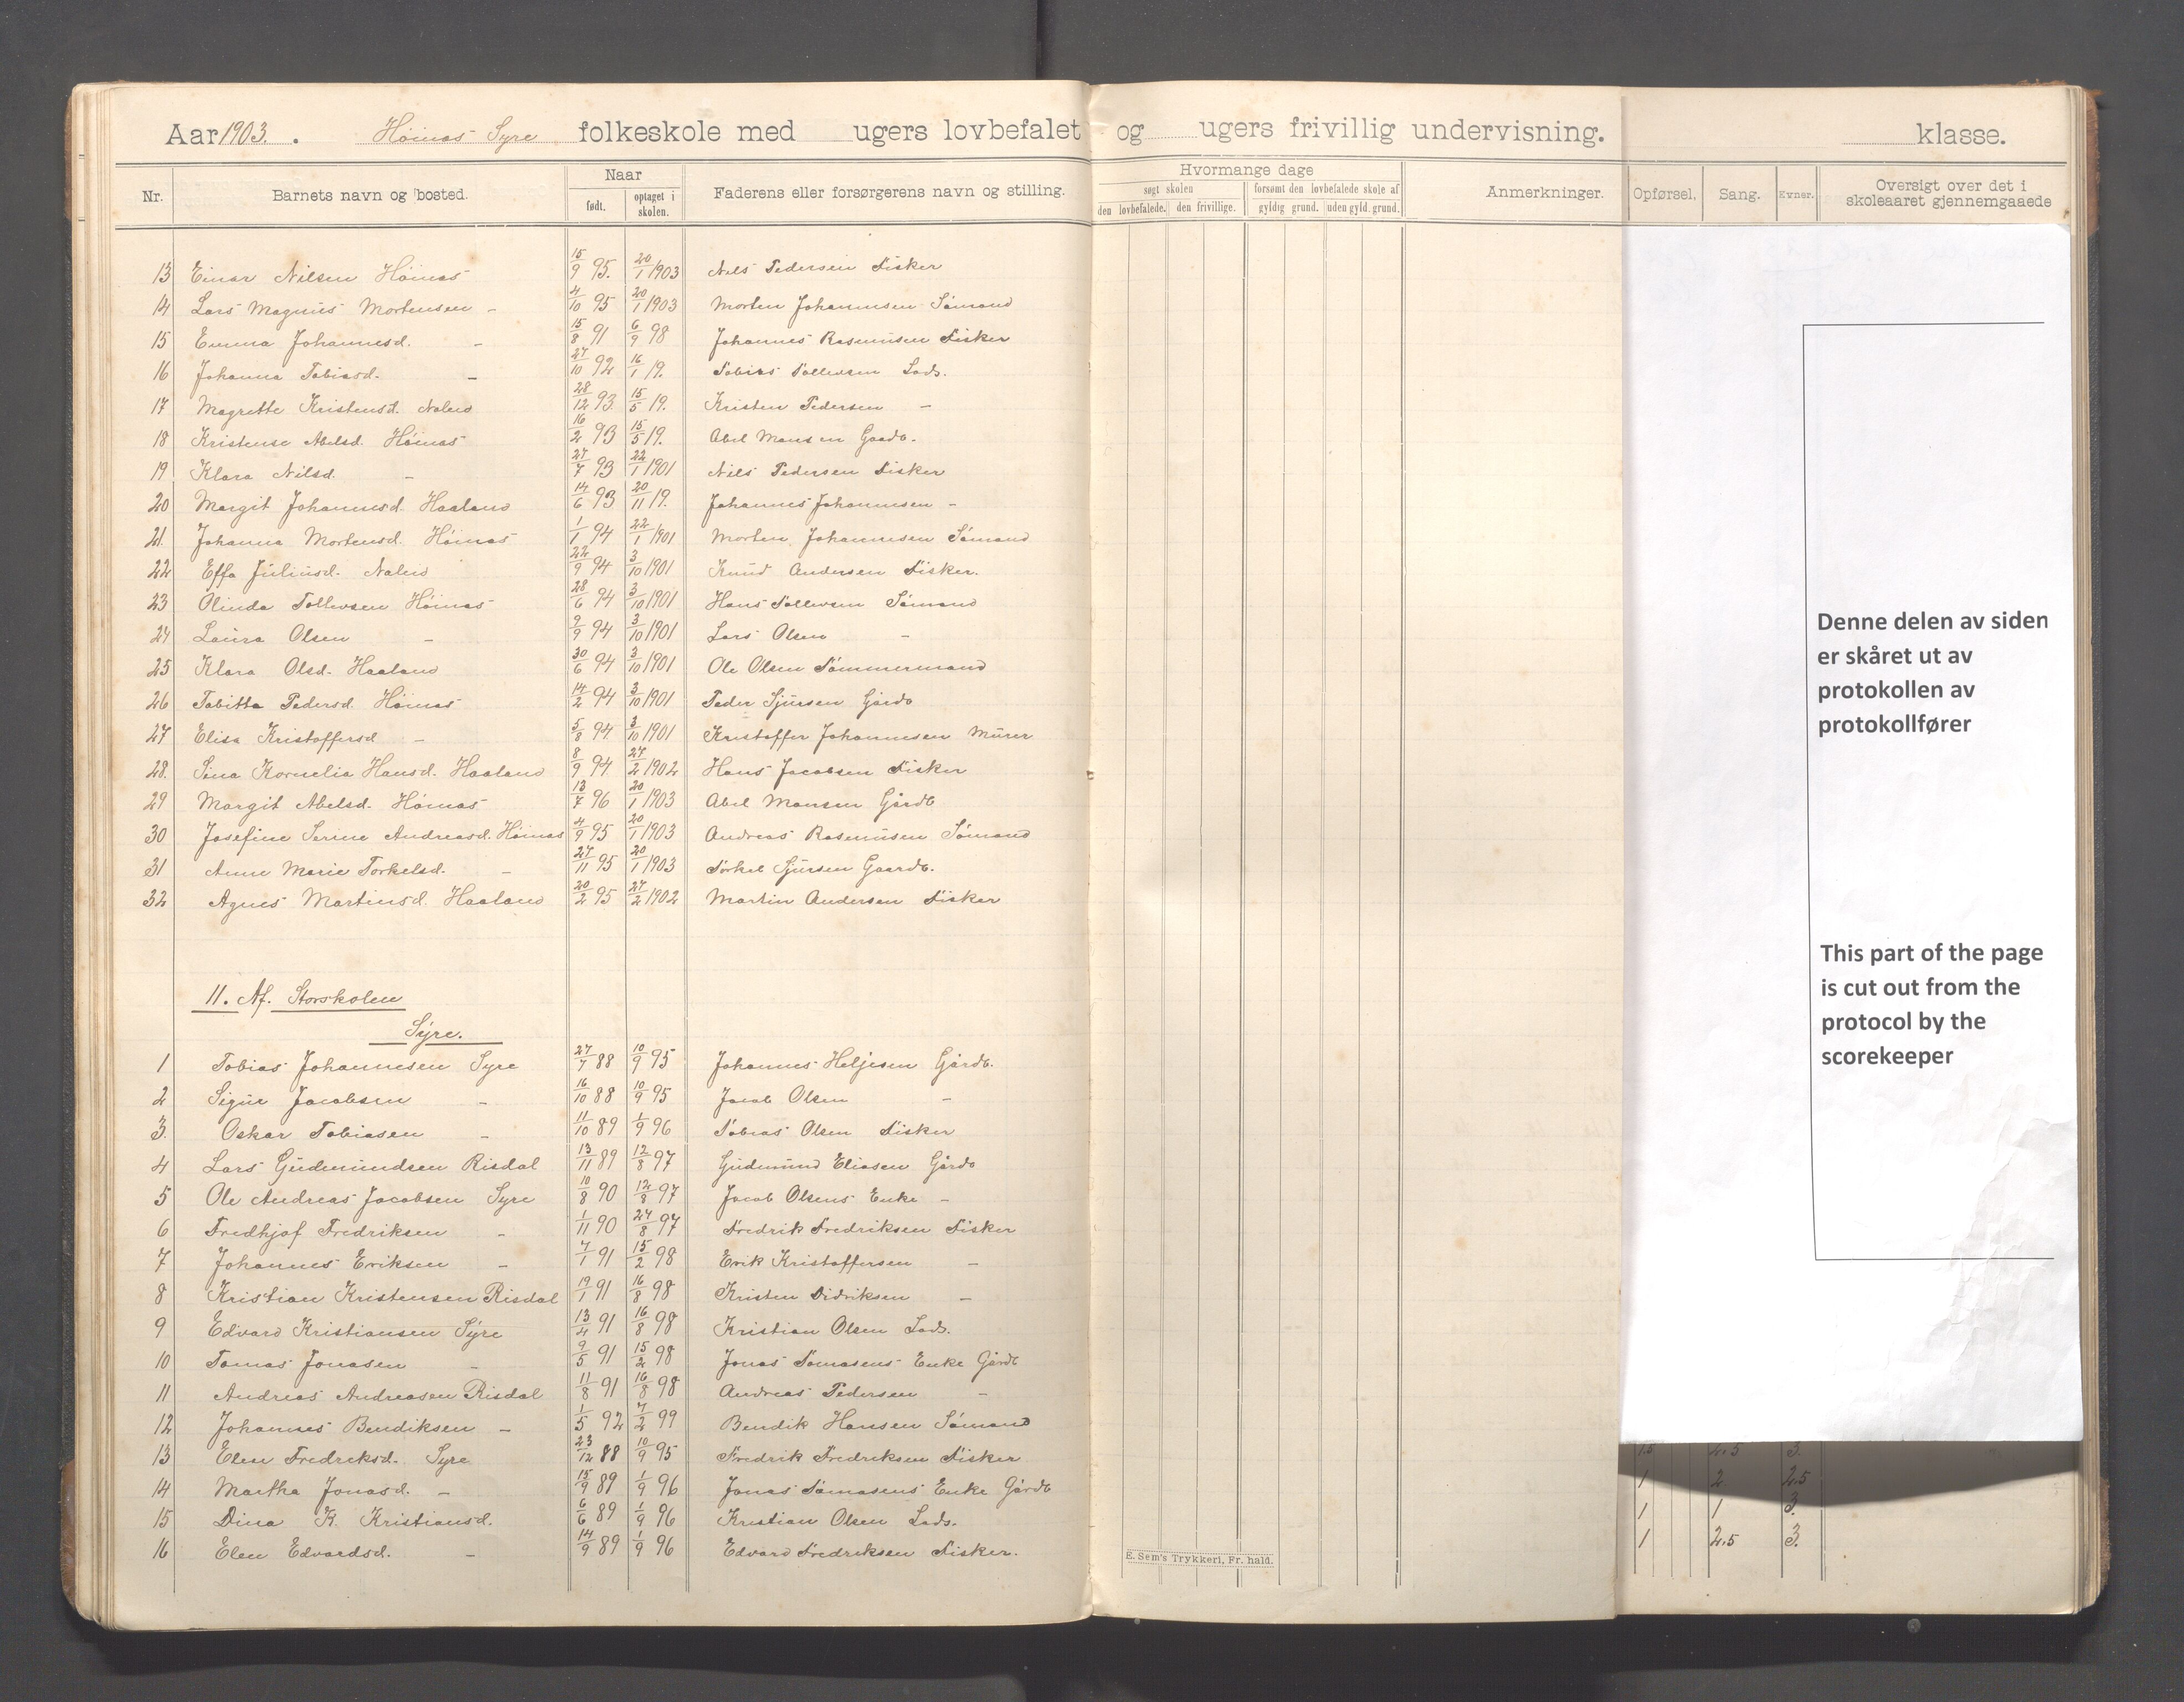 Aar 1903. Høinæs Syre folkeskole med ugers lovbefalet og ugers frivillig undervisning. klasse.
Nr. Barnets navn og bosted. Naar født. optaget i skolen. Faderens eller forsørgerens navn og stilling. Hvormange dage søgt skolen den lovbefalede. den frivillige. forsømt den lovbefalede skole af gyldig grund. uden gyld. grund. Anmerkninger. Opførsel. Sang. Evner. Oversigt over det i skoleaaret gjennemgaaede
13 Einar Nilsen Høinæs 15/9 95. 20/1 1903 Nils Pedersen Fisker
14 Lars Magnus Mortensen - 4/10 95 20/1 1903 Morten Johannesen Sømand
15 Emma Johannesd. - 15/8 91 6/9 98 Johannes Rasmusen Fisker
16 Johanna Tobiasd. - 27/10 92 16/1 19. Tobias Tollevsen Lods.
17 Magrette Kristensd. 28/12 93. 15/5 19. Kristen Pedersen -
18 Kristense Abelsd. Høinæs 16/2 93 15/5 19. Abel Monsen Gaardb.
19 Klara Nilsd. - 27/7 93 22/1 1901 Nils Pedersen Fisker
20 Margit Johannesd. Haaland 14/6 93 20/11 19. Johannes Johannesen -
21. Johanna Mortensd. Høinæs 1/1 94 22/1 1901 Morten Johannesen Sømand
22 Effa Juliusd. 22/9 94 3/10 1901 Knud Andersen Fisker.
23 Olinda Tollevsen Høinæs 28/6 94 3/10 1901 Hans Tollevsen Sømand
24 Laura Olsen - 9/9 94 3/10 1901 Lars Olsen -
25 Klara Olsd. Haaland 30/6 94 3/10 1901 Ole Olsen Tømmermand
26 Tabitta Pedersd. Høinæs 14/2 94 3/10 1901 Peder Sjursen Gårdb
27 Elisa Kristoffersd - 5/8 94. 3/10 1901 Kristoffer Johannesen Murer
28. Sina Kornelia Hansd. Haaland 8/9 94. 27/2 1902 Hans Jacobsen Fisker
29 Margit Abelsd. Høinæs 13/7 96 20/1 1903 Abel Monsen Gårdb
30 Josefine Serine Andreasd. Høinæs 4/9 95 20/1 1903 Andreas Rasmusen Sømand
31 Anne Marie Torkelsd. - 27/11 95 20/1 1903 Torkel Sjursen Gaardb.
32 Agnes Martinsd. Haaland 20/2 95 27/2 1902 Martin Andersen Fisker
11. Af. Storskolen
Syre.
1 Tobias Johannesen Syre 27/7 88 10/9 95 Johannes Heljesen Gårdb.
2 Signe Jacobsen - 16/10 88 10/9 95 Jacob Olsen -
3. Oskar Tobiasen - 11/10 89 1/9 96 Tobias Olsen Fisker
4 Lars Gudmundsen Risdal 13/11 89 12/8 97 Gudmund Eliasen Gårdb
5 Ole Andreas Jacobsen Syre 10/8 90 12/8 97 Jacob Olsens Enke -
6 Fredhjof Fredriksen - 1/11 90 24/8 97 Fredrik Fredriksen Fisker
7 Johannes Eriksen - 7/1 91 15/2 98 Erik Kristoffersen -
8 Kristian Kristensen Risdal 19/1 91 16/8 98 Kristen Didriksen -
9 Edvard Kristiansen Syre 13/4 91 16/8 98 Kristian Olsen Lods.
10 Tomas Jonasen - 9/5 91 15/2 98 Jonas Tomasens Enke Gårdb
11 Andreas Andreasen Risdal 11/8 91 16/8 98 Andreas Pedersen -
12 Johannes Bendiksen - 1/5 92 7/2 99 Bendik Hansen Sømand
13 Elen Fredreksd. Syre 23/12 88 10/9 95 Fredrik Fredreksen Fisker
14 Martha Jonasd. - 15/9 89 1/9 96 Jonas Tomasens Enke Gårdb
15 Dina K. Kristiansd. 6/6 89 1/9 96 Kristian Olsen Lods.
16 Elen Edvardsd. - 14/9 89 1/9 96 Edvard Fredreksen Fisker.
E. Sem's Trykkeri, Fr. hald.
Denne delen av siden
er skåret ut av
protokollen av
protokollfører
This part of the page
is cut out from the
protocol by the
scorekeeper
1.5 2.5 3.
1 2. 2.5
1 1 3.
1 2.5 3.